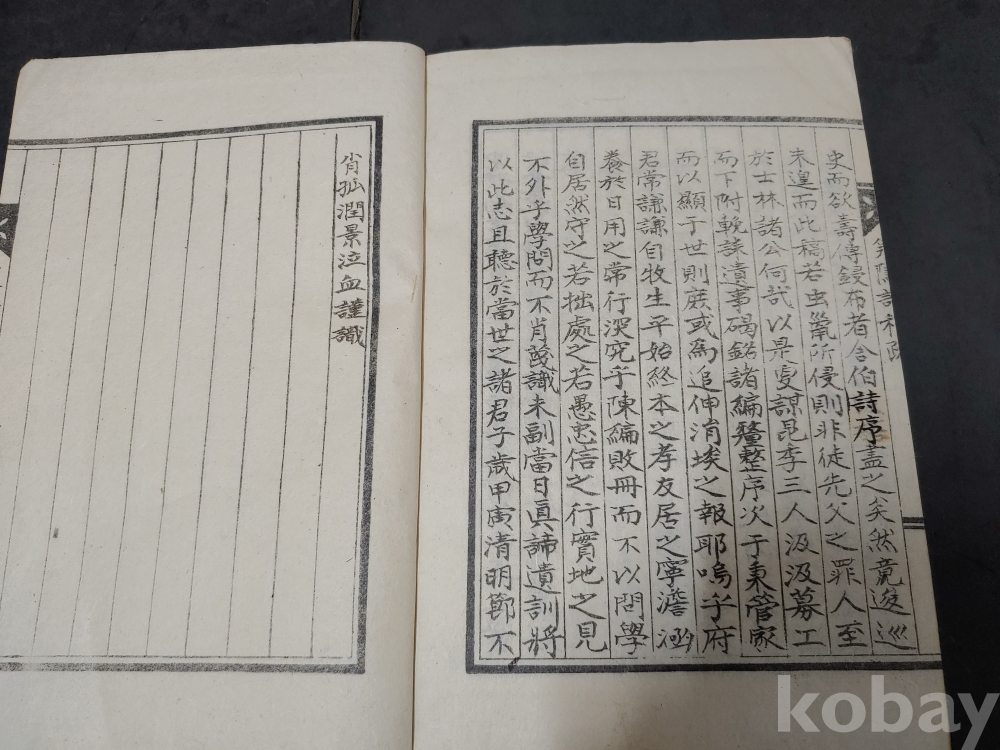 史而欲壽傳鋟布者含伯詩序盡之矣然竟逡巡
未遑而此稿若虫氄所侵則非徒先父之罪人至
於士林諸公何哉以是叟謀昆季三人汲汲募工
而下附輓誄遺事碣銘諸編釐整序次于秉管家
而以顯于世則庶或為追伸涓埃之報耶嗚乎府
君常謙謙自牧生平始終本之孝友居之寧澹涵
養於日用之常行深究乎陳編敗冊而不以問學
自居然守之若拙處之若愚忠信之行實地之見
不外乎學問而不肖蔑識未副當日眞諦遺訓將
以此志且聽於當世之諸君子歲甲寅清明鄭不
肖孤潤景泣血謹識
kobay